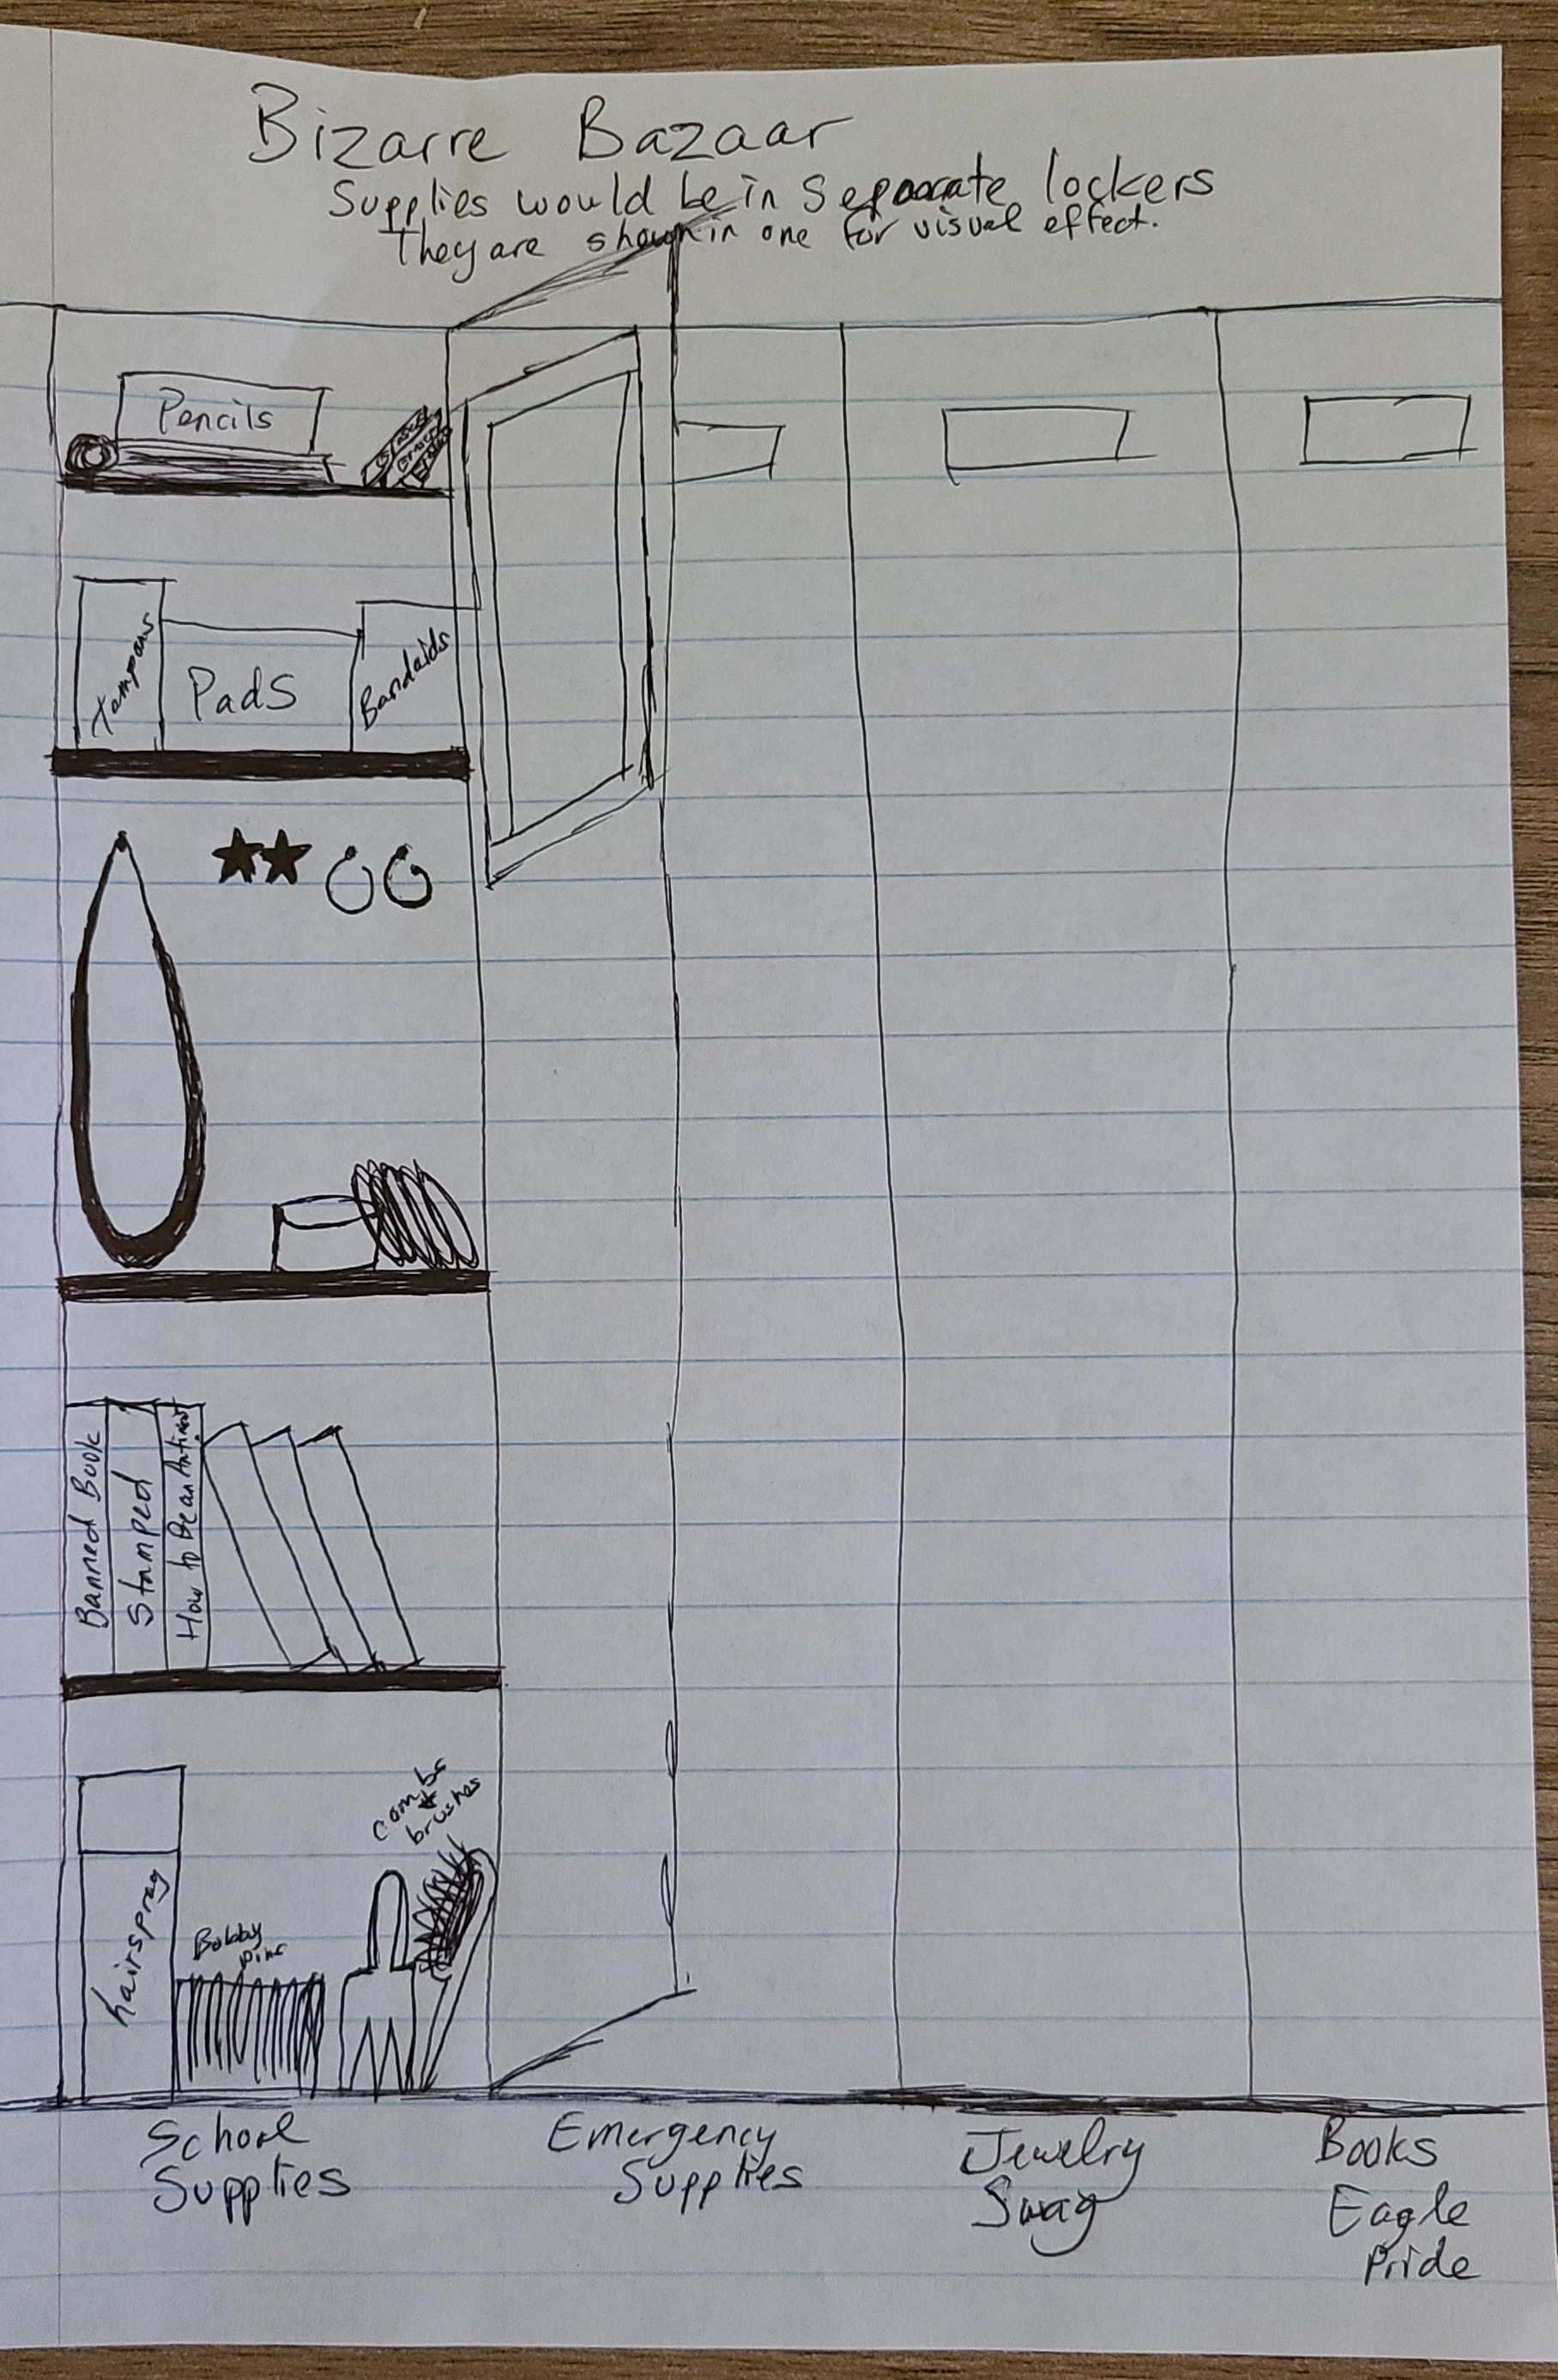 Bizarre Bazaar
Supplies would be in Separate lockers
They are shown in one for visual effect.
Pencils
Tampons
Pads
Bandaids
Banned Book
Stamped
How to Be an Antiracist
combs
&
brushes
hairspray
Bobby
Pins
School
Supplies
Emergency
Supplies
Jewelry
Swag
Books
Eagle
Pride